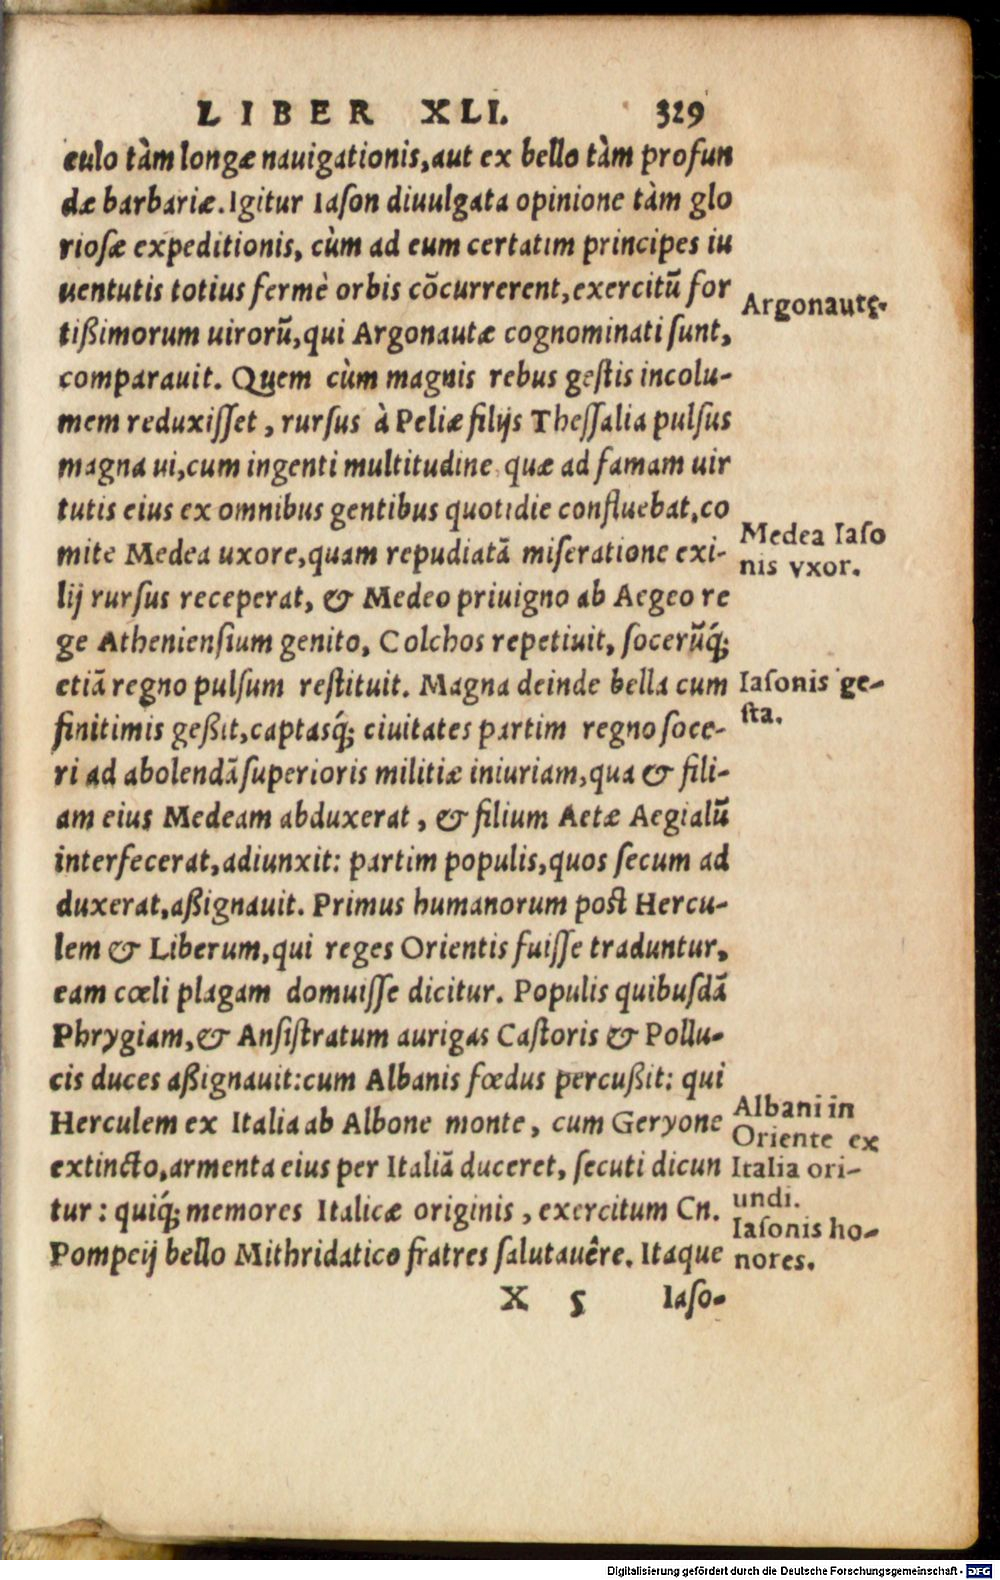 LIBER XLI. 329
culo tàm longæ nauigationis, aut ex bello tàm profun
dæ barbariæ. Igitur Iason diuulgata opinione tàm glo
riosæ expeditionis, cùm ad eum certatim principes iu
uentutis totius fermè orbis cõcurrerent, exercitũ for
tißimorum uirorũ, qui Argonautæ cognominati sunt,
Argonautę.
comparauit. Quem cùm magnis rebus gestis incolu-
mem reduxisset, rursus à Peliæ filijs Thessalia pulsus
magna ui, cum ingenti multitudine quæ ad famam uir
tutis eius ex omnibus gentibus quotidie confluebat, co
mite Medea uxore, quam repudiatã miseratione exi-
Medea Iaso
nis vxor.
lij rursus receperat, & Medeo priuigno ab Aegeo re
ge Atheniensium genito, Colchos repetiuit, socerũq́;
etiã regno pulsum restituit. Magna deinde bella cum
Iasonis ge-
sta.
finitimis geßit, captasq́; ciuitates partim regno soce-
ri ad abolendã superioris militiæ iniuriam, qua & fili-
am eius Medeam abduxerat, & filium Aetæ Aegialũ
interfecerat, adiunxit: partim populis, quos secum ad
duxerat, aßignauit. Primus humanorum post Hercu-
lem & Liberum, qui reges Orientis fuisse traduntur,
eam cœli plagam domuisse dicitur. Populis quibusdã
Phrygiam, & Ansistratum aurigas Castoris & Pollu-
cis duces aßignauit: cum Albanis fœdus percußit: qui
Herculem ex Italia ab Albone monte, cum Geryone
extincto, armenta eius per Italiã duceret, secuti dicun
Albani in
Oriente ex
Italia ori-
undi.
tur: quiq́; memores Italicæ originis, exercitum Cn.
Pompeij bello Mithridatico fratres salutauêre. Itaque
Iasonis ho-
nores.
X 5 Iaso-
Digitalisierung gefördert durch die Deutsche Forschungsgemeinschaft - DFG